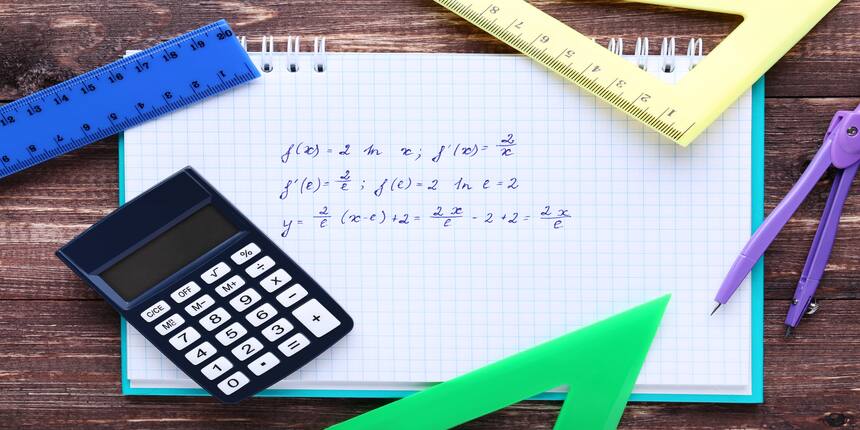 12 13 14 15 16 17 18 19 20
6 5 4 3 2 1
8 7 6 5 4 3 2 1
f(x) = 2 ln x; f'(x) = 2/x
f'(e) = 2/e; f(e) = 2 ln e = 2
y = 2/e (x-e) + 2 = 2x/e - 2 + 2 = 2x/e
C/CE OFF √ %
M- M+ ÷
7 8 9 ×
4 5 6 −
1 2 3 +
0 . =